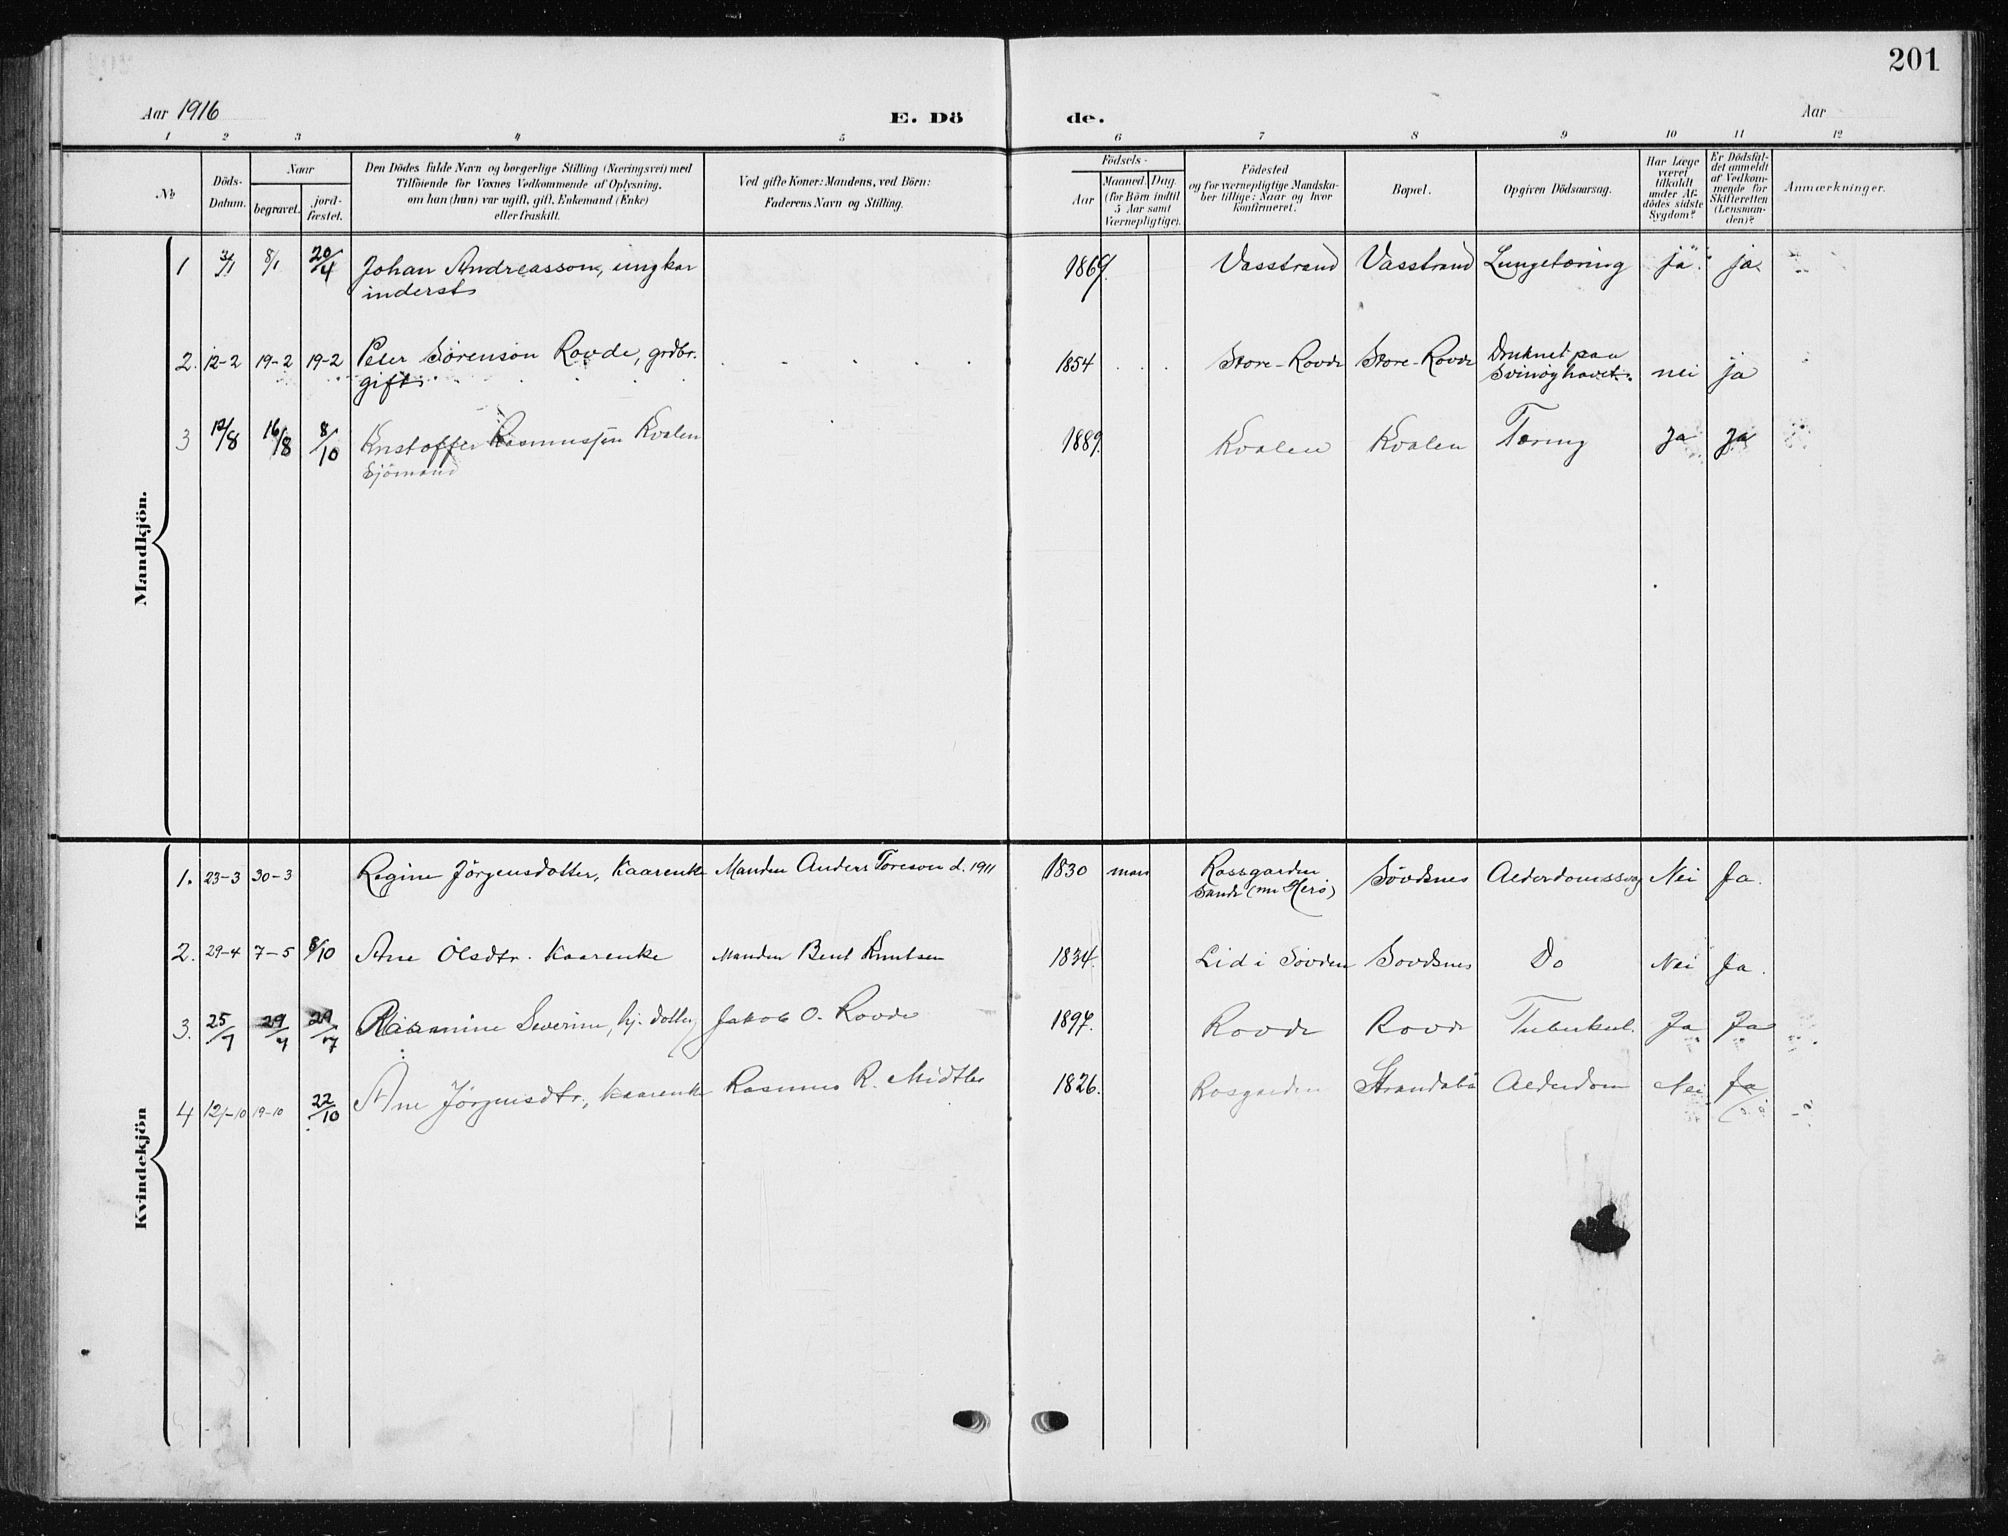 201
Aar 1916
E. Dö
de.
Aar
1 2 3 4 5 6 7 8 9 10 11 12
No
Döds-Datum.
Naar
begravet.
jordfæstet.
Den Dödes fulde Navn og borgerlige Stilling (Næringsvei) med
Tilföiende for Voxnes Vedkommende af Oplysning,
om han (hun) var ugift, gift, Enkemand (Enke)
eller fraskilt.
Ved gifte Koner: Mandens, ved Börn:
Faderens Navn og Stilling.
Födsels-
Aar
Maaned. Dag
(for Börn indtil
5 Aar samt
Værnepligtige).
Födested
og for værnepligtige Mandskaber tillige: Naar og hvor
konfirmeret.
Bopæl.
Opgiven Dödsaarsag.
Har Læge
været
tilkaldt
under Afdödes sidste
Sygdom?
Er Dödsfaldet anmeldt
af Vedkommende for
Skifteretten
(Lensmanden)?
Anmærkninger.
Mandkjön.
1 3/1 8/1 20/4 Johan Andreassøn, ungkar 1869 Vasstrand Vasstrand Lungetæring ja ja
inderst
2. 12-2 19-2 19-2 Peter Sørensøn Rovde, grdbr. 1854 Store-Rovde Store-Rovde Druknet paa
gift. Svinøyhavet. nei ja
3 12/8 16/8 8/10 Kristoffer Rasmussen Kvalen 1889. Kvalen Kvalen Tæring Ja Ja
Sjömand
Kvindekjön
1. 23-3 30-3 Regine Jörgensdotter, Kaarenke Manden Anders Toreson d. 1911 1830 mars Rossgarden Søvdnes Alderdomssvag Nei Ja.
Sande (nu Herø)
2. 29-4 7-5 8/10 Ane Olsdtr. Kaarenke Manden Bent Knutsen 1834. Lid i Søvden Sovdsnes Do Nei Ja.
3. 25/7 29/7 29/7 Rasmine Severine, hj. dotter, Jakob O. Rovde 1897. Rovde Rovde Tuberkul. Ja Ja
4 12-10 19-10 22/10 Ane Jörgensdtr, Kaarenke Rasmus R. Midtbø 1826. Rosgarden Strandabø Alderdom Nei Ja